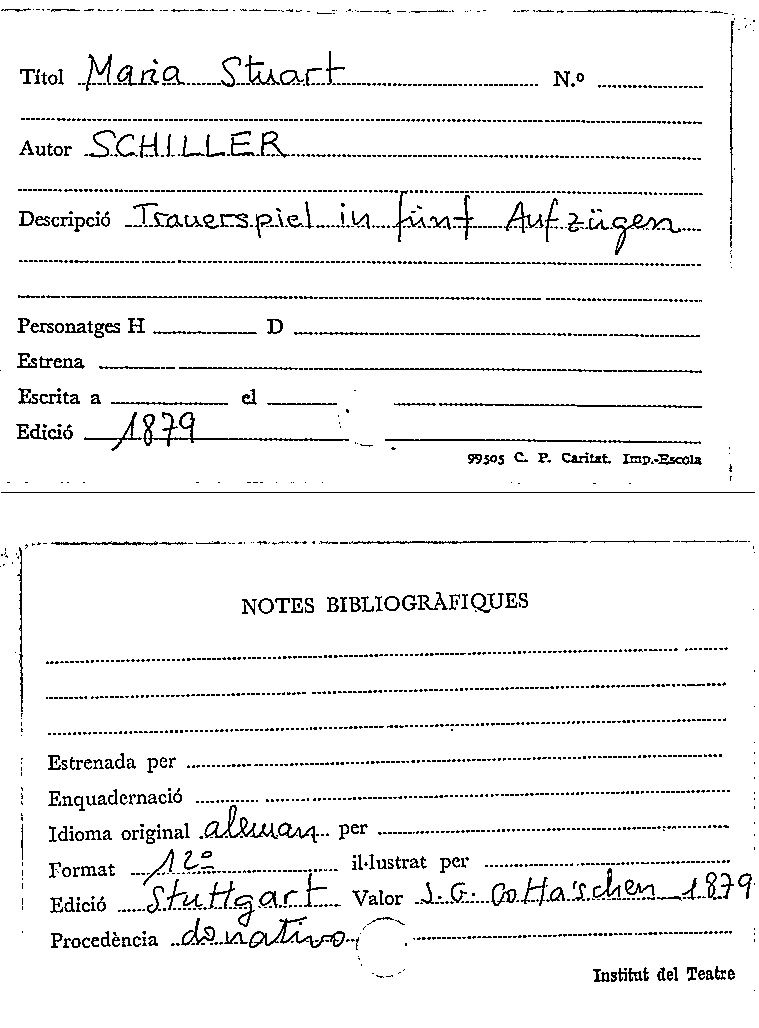 Títol Maria Stuart N.º
Autor SCHILLER
Descripció Trauerspiel in fünf Aufzügen
Personatges H D
Estrena
Escrita a el
Edició 1879
99505 C. P. Caritat. Imp.-Escola
NOTES BIBLIOGRÀFIQUES
Estrenada per
Enquadernació
Idioma original aleman per
Format 12º il·lustrat per
Edició Stuttgart Valor J. G. Cotta'schen 1879
Procedència donativo
Institut del Teatre